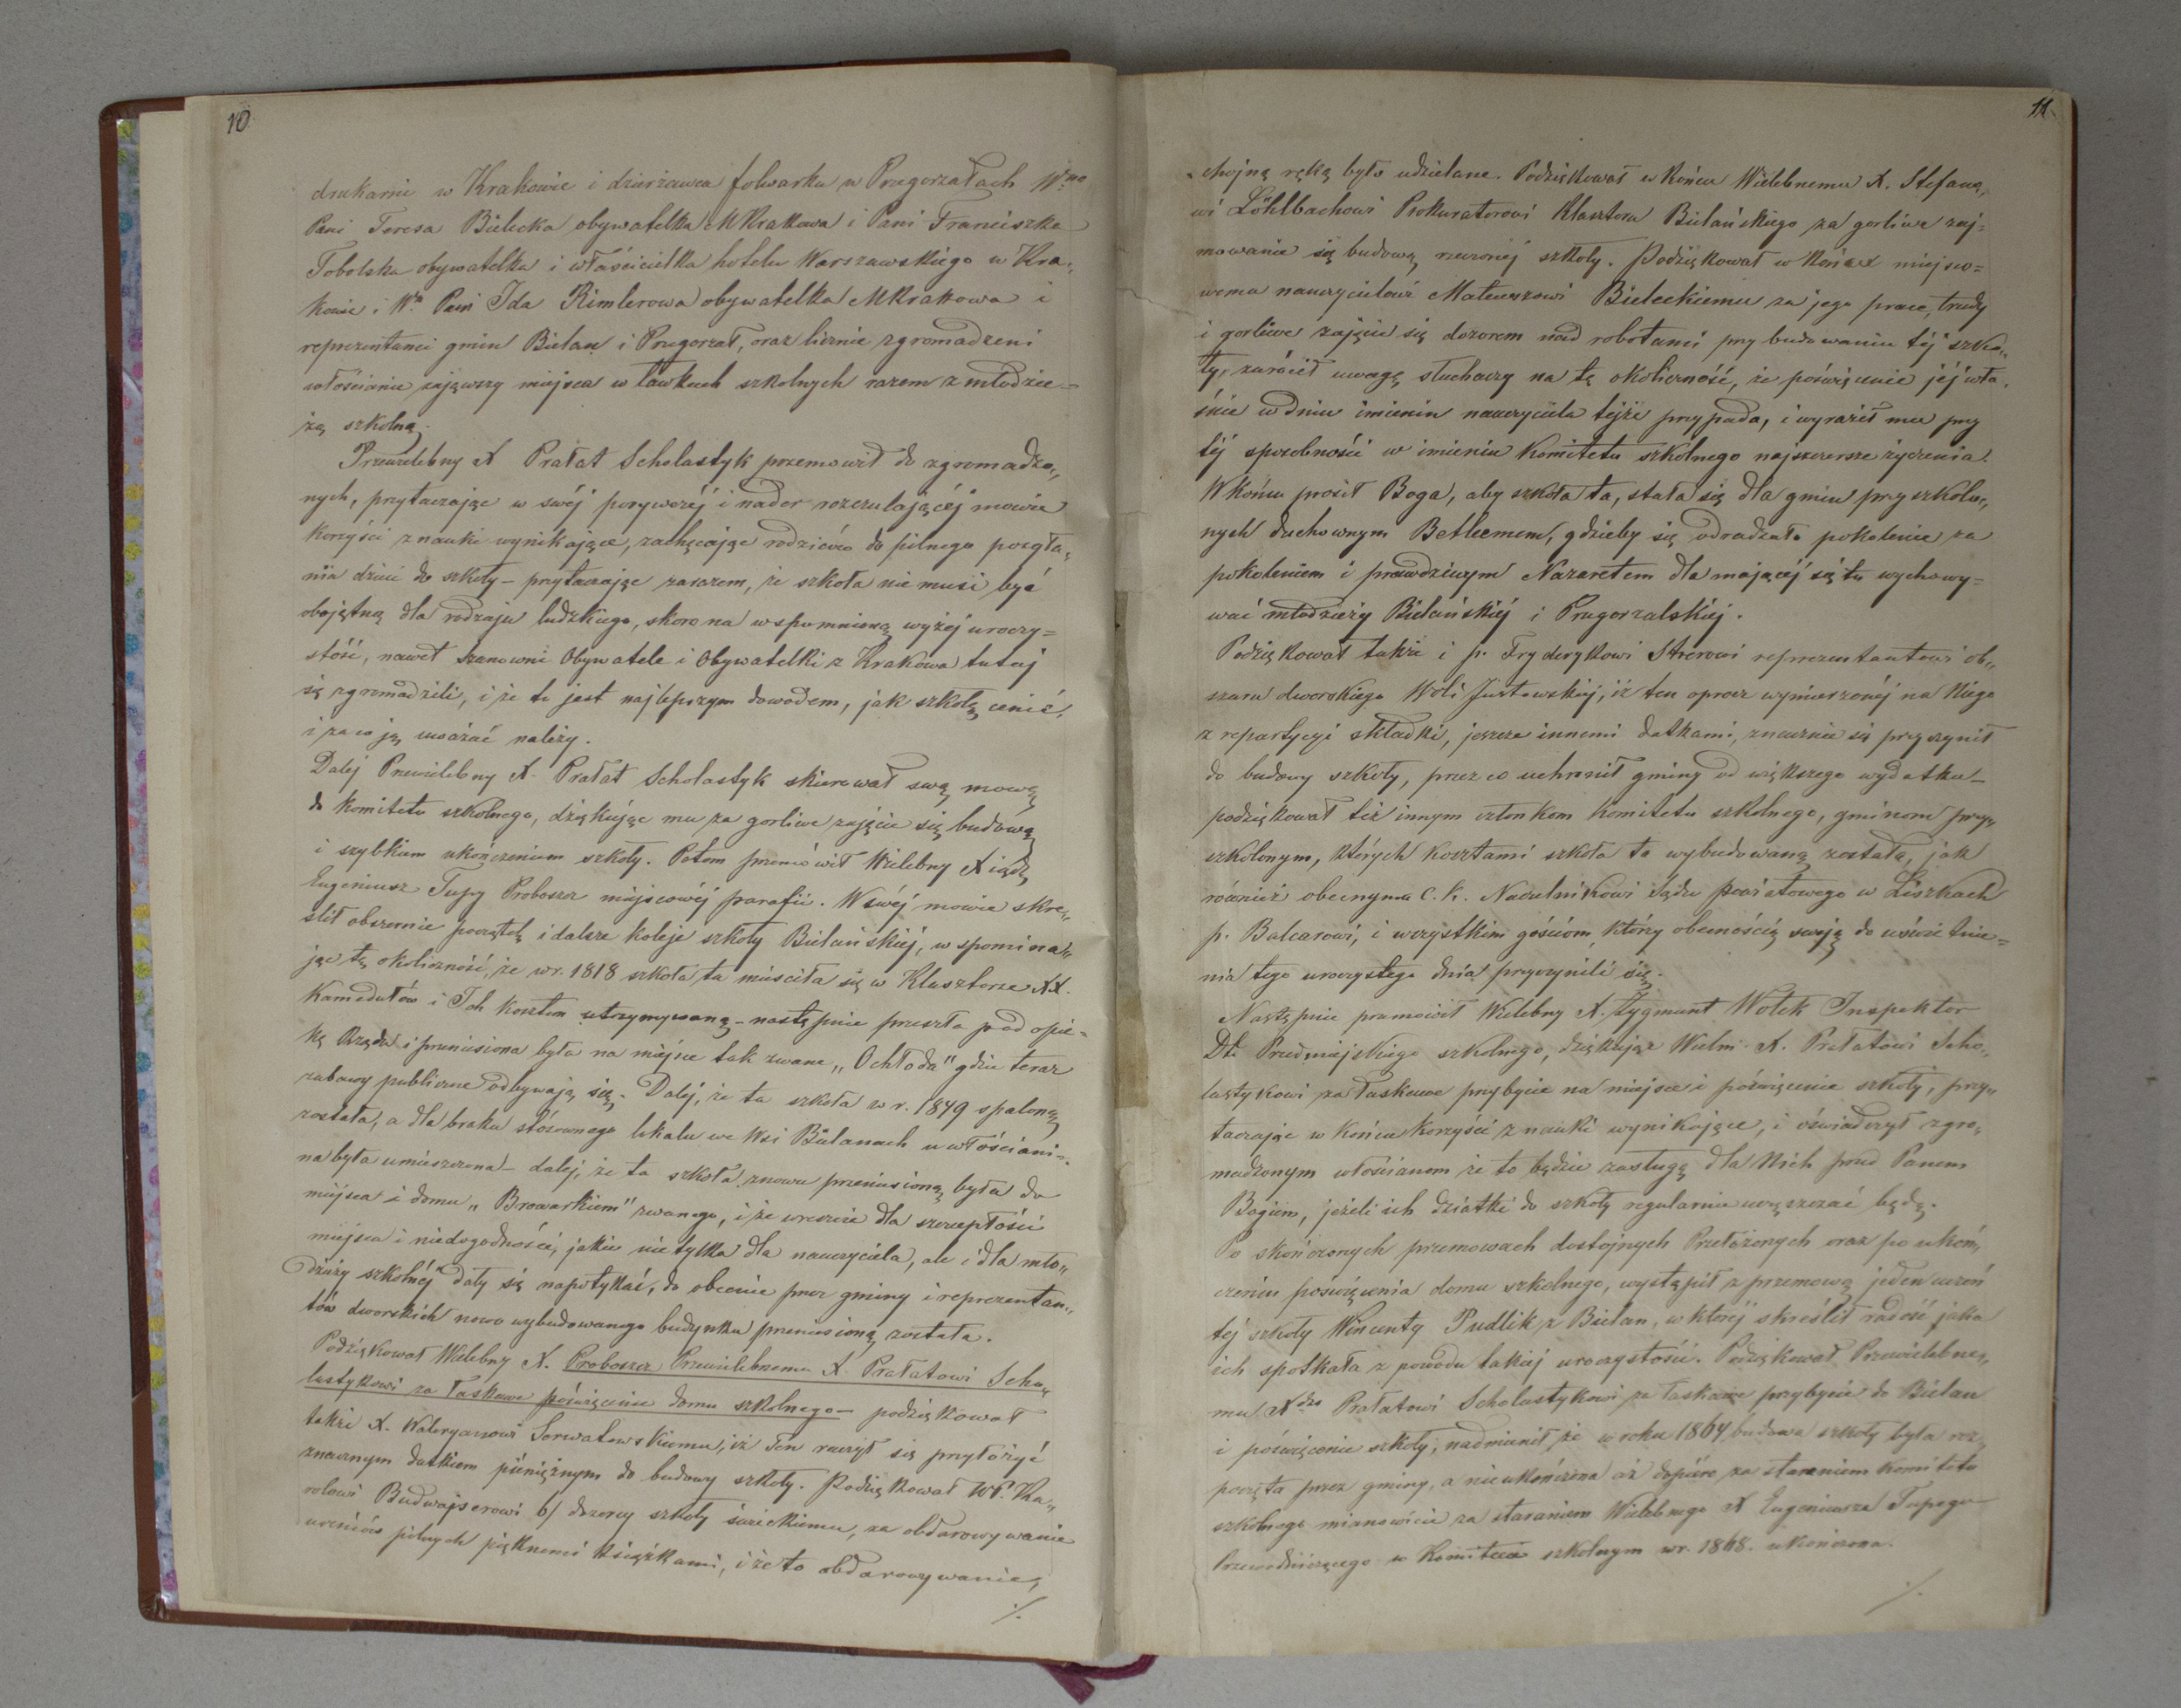 10
drukarni w Krakowie i dzierżawca folwarku w Przegorzałach W.na
Pani Teresa Bielecka obywatelka MKrakowa i Pani Franciszka
Tobolska obywatelka i właścicielka hotelu Warszawskiego w Kra„
kowie i W.a Pani Ida Kimlerowa obywatelka MKrakowa i
reprezentanci gmin Bielan i Przegorzał, oraz licznie zgromadzeni
włościanie zająwszy miejsca w ławkach szkolnych razem z młodzie=
żą szkolną.
Przewielebny X Prałat Scholastyk przemowił do zgromadzo„
nych, przytaczając w swéj porywczéj i nader rozczulającéj mowie
korzyści z nauki wynikające, zachęcając rodziców do pilnego posyła„
nia dzieci do szkoły – przytaczając zarazem, że szkoła nie musi być
obojętną dla rodzaju ludzkiego, skoro na wspomnioną wyżéj uroczy=
stość, nawet szanowni Obywatele i Obywatelki z Krakowa tutaj
się zgromadzili, i że to jest najlepszym dowodem, jak szkołę cenić,
i za co ją uważać należy.
Dalej Przewielebny X. Prałat Scholastyk skierował swą mowę
do komitetu szkolnego, dziękując mu za gorliwe zajęcie się budową
i szybkiem ukończeniem szkoły. Potem przemówił Wielebny Xiądz
Eugeniusz Tupy Proboszcz miejscowéj parafii. W swéj mowie skre„
ślił obszernie początek i dalsze koleje szkoły Bielańskiéj, wspomina„
jąc tę okoliczność, że w r. 1818 szkoła ta mieściła się w Klasztorze XX.
Kamedułów i Ich kosztem utrzymywaną – następnie przeszła pod opie=
kę Rządu i przeniesiona była na miejsce tak zwane „Ochłoda" gdzie teraz
zabawy publiczne odbywają się. Dalej, że ta szkoła w r. 1849 spaloną
została, a dla braku stósownego lokalu we wsi Bielanach u włościani„
na była umieszczona – dalej, że ta szkoła znowu przeniesioną była do
miejsca i domu „Browarkiem" zwanego, i że wreszcie dla szczupłości
miejsca i niedogodności, jakie nie tylko dla nauczyciela, ale i dla mło„
dzieży szkolnéj dały się napotykać, do obecnie przez gminy i reprezentan„
tów dworskich nowo wybudowanego budynku przeniesioną została.
Podziękował Wielebny X. Proboszcz Przewielebnemu X. Prałatowi Scho„
lastykowi za łaskawe poświęcenie domu szkolnego – podziękował
także X. Waleryanowi Serwatowskiemu, iż Ten raczył się przyłożyć
znacznym datkiem pieniężnym do budowy szkoły. Podziękował WP. Ka„
rolowi Budwajserowi b/ dozorcy szkoły świeckiemu, za obdarowywanie
uczniów pilnych pięknemi książkami, i że to obdarowywanie,
./.
11
chojną ręką było udzielane. Podziękował w końcu Wielebnemu X. Stefano„
wi Löhlbachowi Prokuratorowi Klasztoru Bielańskiego za gorliwe zaj=
mowanie się budową rzeczonéj szkoły. Podziękował w końcu miejsco=
wemu nauczycielowi Mateuszowi Bieleckiemu za jego prace, trudy
i gorliwe zajęcie się dozorem nad robotami przy budowaniu téj szko„
ły, zwrócił uwagę słuchaczy na tę okoliczność, że poświęcenie jéj wła„
śnie w dniu imienin nauczyciela tejże przypada, i wyraził mu przy
téj sposobności w imieniu Komitetu szkolnego najszczersze życzenia.
W końcu prosił Boga, aby szkoła ta, stała się dla gmin przyszkol„
nych duchownym Betleemem, gdzieby się odradzało pokolenie za
pokoleniem i prawdziwym Nazaretem dla mającéj się tu wychowy=
wać młodzieży Bielańskiéj i Przegorzalskiéj.
Podziękował także i p. Fryderykowi Strerowi reprezentantowi ob„
szaru dworskiego Woli Justowskiéj, iż ten oprócz wymierzonéj na Niego
z repartycyi składki, jeszcze innemi datkami, znacznie się przyczynił
do budowy szkoły, przez co uchronił gminy od większego wydatku –
podziękował téż innym członkom Komitetu szkolnego, gminom przy„
szkolonym, których kosztami szkoła ta wybudowaną została, jak
również obecnym C. K. Naczelnikowi Sądu powiatowego w Liszkach
p. Balcarowi, i wszystkim gościom, którzy obecnością swoją do uświetnie=
nia tego uroczystego dnia przyczynili się.
Następnie przemowił Wielebny X. Zygmunt Wołek Inspektor
Dtu Przedmiejskiego szkolnego, dziękując Wielm. X. Prałatowi Scho„
lastykowi za łaskawe przybycie na miejsce i póświęcenie szkoły, przy„
taczając w końcu korzyści z nauki wynikające, i oświadczył zgro„
madzonym włościanom że to będzie zasługą dla Nich przed Panem
Bogiem, jeżeli ich dziatki do szkoły regularnie uczęszczać będą.
Po skończonych przemowach dostojnych Przełożonych oraz po ukoń„
czeniu poświęcenia domu szkolnego, wystąpił z przemową jeden uczeń
téj szkoły Wincenty Pudlik z Bielan, w któréj skreślił radość jaka
ich spotkała z powodu takiéj uroczystości. Podziękował Przewielebne„
mu Xdzu Prałatowi Scholastykowi za łaskawe przybycie do Bielan
i póświęcenie szkoły, nadmienił, że w roku 1864 budowa szkoły była roz„
poczęta przez gminy, a nieukończona aż dopiéro za staraniem Komitetu
szkolnego mianowicie za staraniem Wielebnego X Eugeniusza Tupego
Przewodniczącego w Komitecie szkolnym w r. 1868. ukończona.
./.